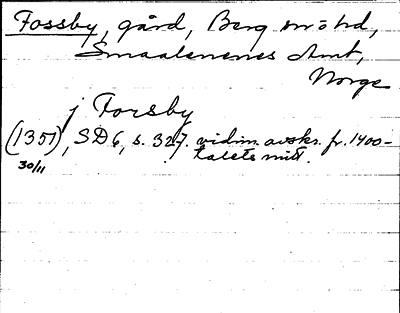 Fossby, gård, Berg snöhd,
Smaalenenes Amt,
Norge
j Forsby
(1351), SD 6, s. 327. vidim. avskr. fr. 1400-
30/11 talets mitt.